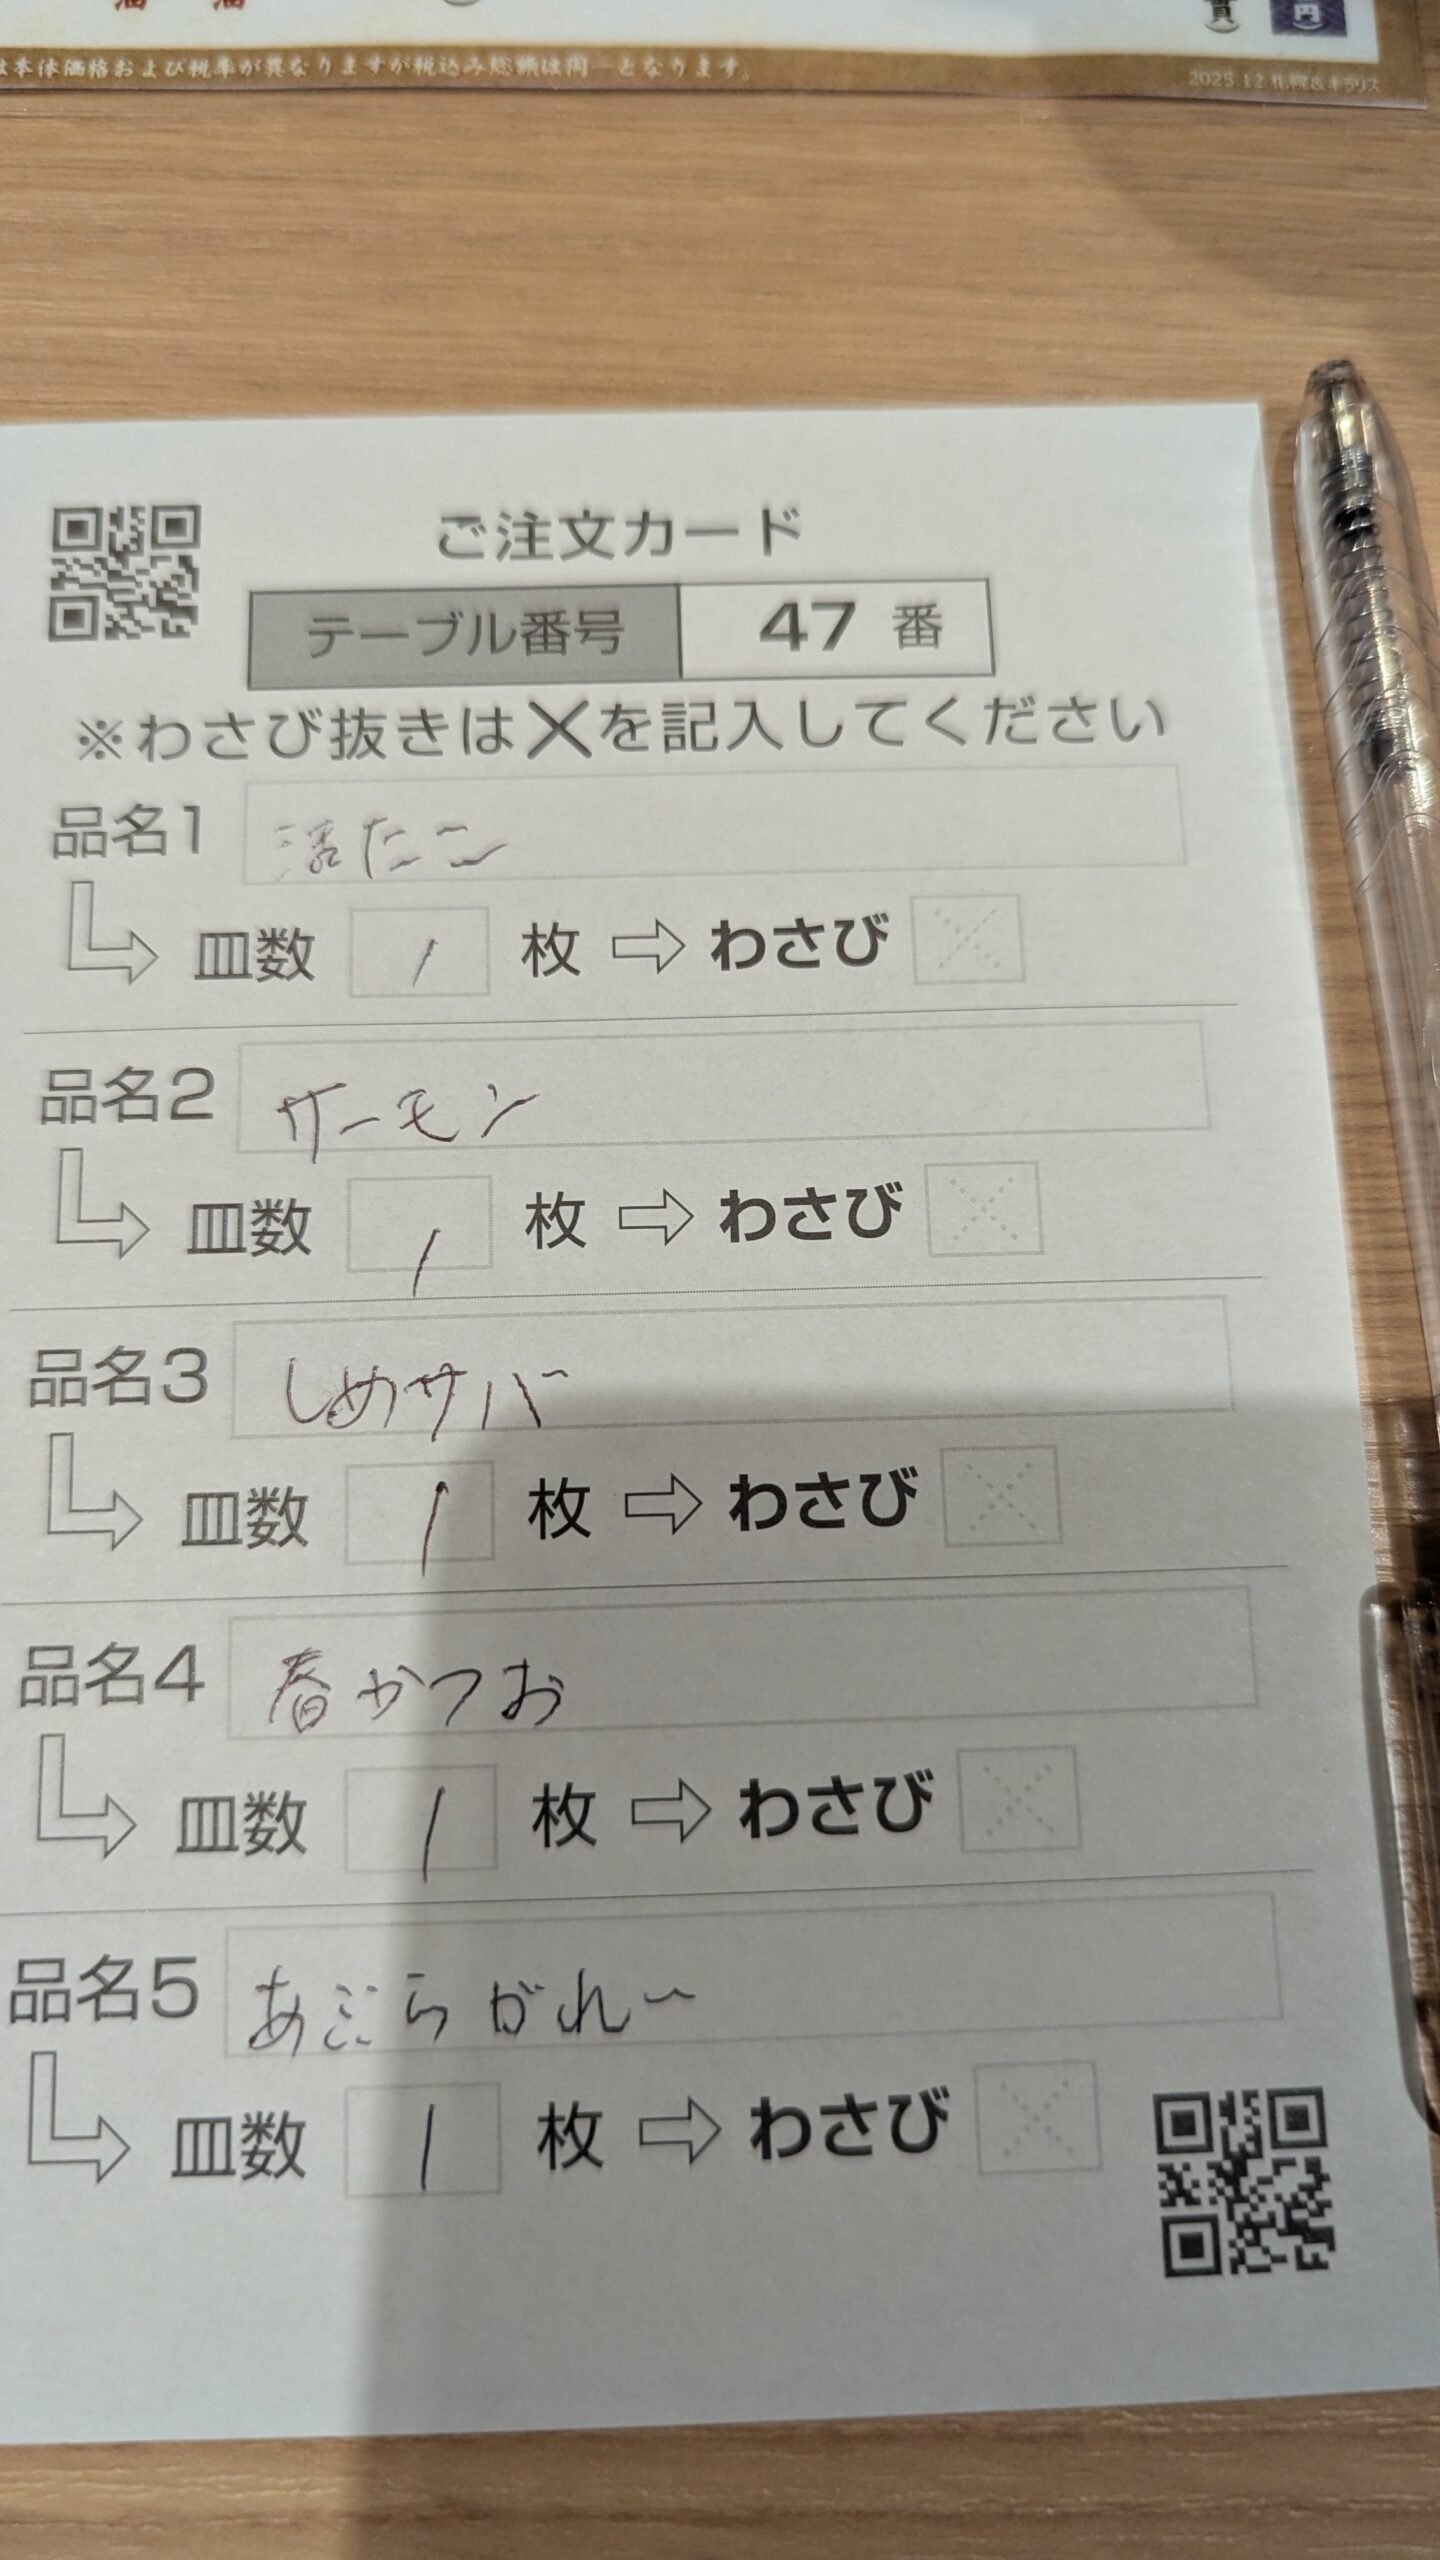 は本体価格および税率が異なりますが税込み総額は同一となります。
2025.12 札幌&キラリス
円
ご注文カード
テーブル番号 47 番
※わさび抜きは×を記入してください
品名1 活たこ
皿数 1 枚 ⇨ わさび
品名2 サーモン
皿数 1 枚 ⇨ わさび
品名3 しめサバ
皿数 1 枚 ⇨ わさび
品名4 春かつお
皿数 1 枚 ⇨ わさび
品名5 あぶらがれー
皿数 1 枚 ⇨ わさび